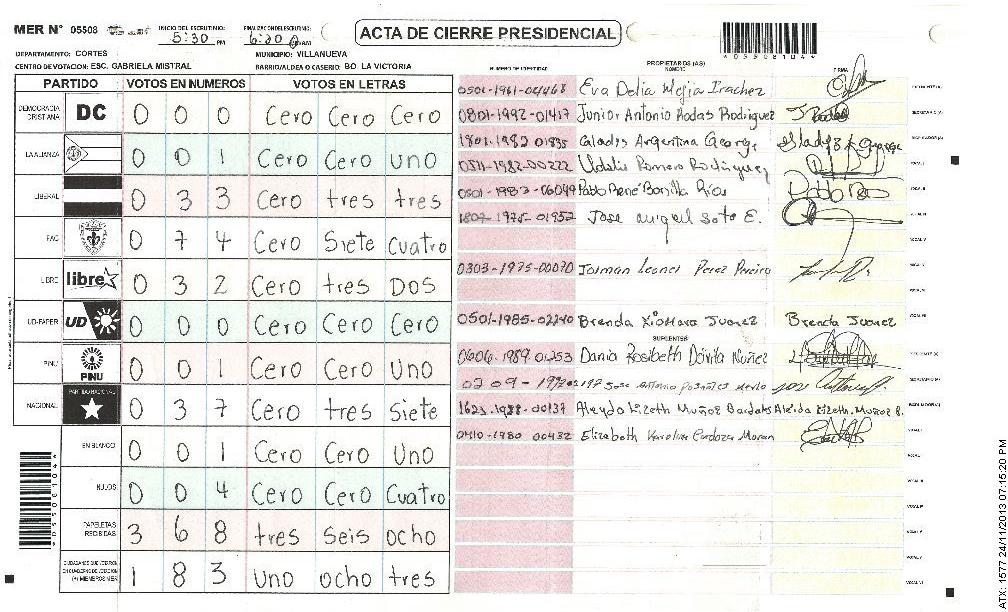 MER N° 05508 INICIO DEL ESCRUTINIO: 5:30 PM FINALIZACION DEL ESCRUTINIO: 6:20 AM
ACTA DE CIERRE PRESIDENCIAL
*05508104*
DEPARTAMENTO: CORTES MUNICIPIO: VILLANUEVA
CENTRO DE VOTACION: ESC. GABRIELA MISTRAL BARRIO/ALDEA O CASERIO: BO. LA VICTORIA
PARTIDO VOTOS EN NUMEROS VOTOS EN LETRAS
DEMOCRACIA CRISTIANA DC 0 0 0 Cero Cero Cero
LA ALIANZA 0 0 1 Cero Cero uno
LIBERAL 0 3 3 Cero tres tres
FAC 0 7 4 Cero Siete Cuatro
LIBRE libre 0 3 2 Cero tres Dos
UD-FAPER UD 0 0 0 Cero Cero Cero
PINU PINU 0 0 1 Cero Cero Uno
NACIONAL PARTIDO NACIONAL 0 3 7 Cero tres Siete
EN BLANCO 0 0 1 Cero Cero Uno
NULOS 0 0 4 Cero Cero Cuatro
PAPELETAS RECIBIDAS 3 6 8 tres seis ocho
CIUDADANOS QUE VOTARON EN CUADERNO DE VOTACION (+) MIEMBROS MER 1 8 3 uno ocho tres
NUMERO DE IDENTIDAD PROPIETARIOS (AS) NOMBRE FIRMA
0501-1961-04468 Eva Delia Mejia
0801-1992-01417 Junior Antonio Rodas Rodriguez
1801-1982 01835 Argentina George
0511-1982-00222 Romero Rodriguez
0501-1983-06049 Pablo René Bonilla Ríos
Jose Miguel Soto E.
0303-1975-00070 Leonel Perez Pereira
0501-1985-02240 Brenda Xiomara Juarez Brenda Juarez
SUPLENTES
0606-1989-01253 Dania Rosibeth Dávila Nuñez
Jose Antonio
1623-1988-00137 Aleyda Lizeth Muñoz Aleida Lizeth. Muñoz B.
0410-1980 00432 Elizabeth Karolina Cardoza Moran
*05508104*
ATX: 1577 24/11/2013 07:15:20 PM